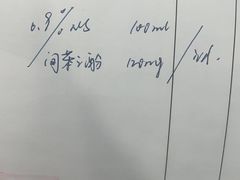 0.9% NS 100ml
间苯三酚 120mg / ivd.